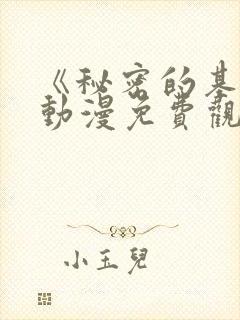 《秘密的基
動漫免費觀
小玉兒